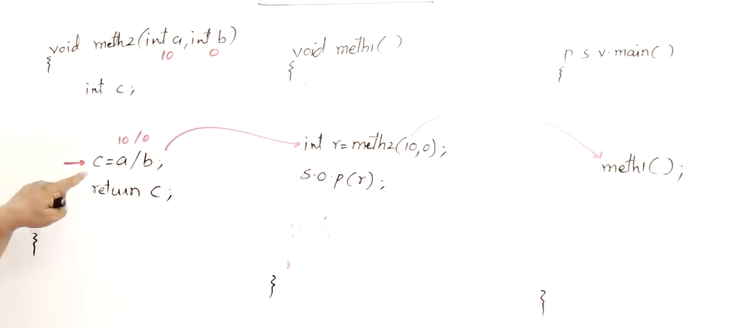 void meth2(int a, int b)
10 0
{
int c;
10/0
c=a/b;
return c;
}
void meth1()
{
int r=meth2(10,0);
S.O.p(r);
}
p s v main()
{
meth1();
}